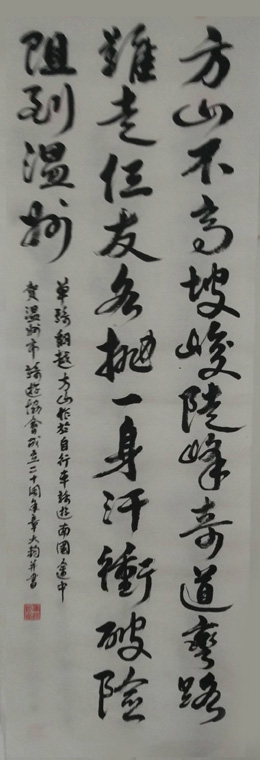 方山不高坡峻陡峰奇道弯路
难走但友各抛一身汗冲破险
阻到温州
单骑翻越方山作于自行车骑游南国途中
贺温州市骑游协会成立二十周年章大均并书